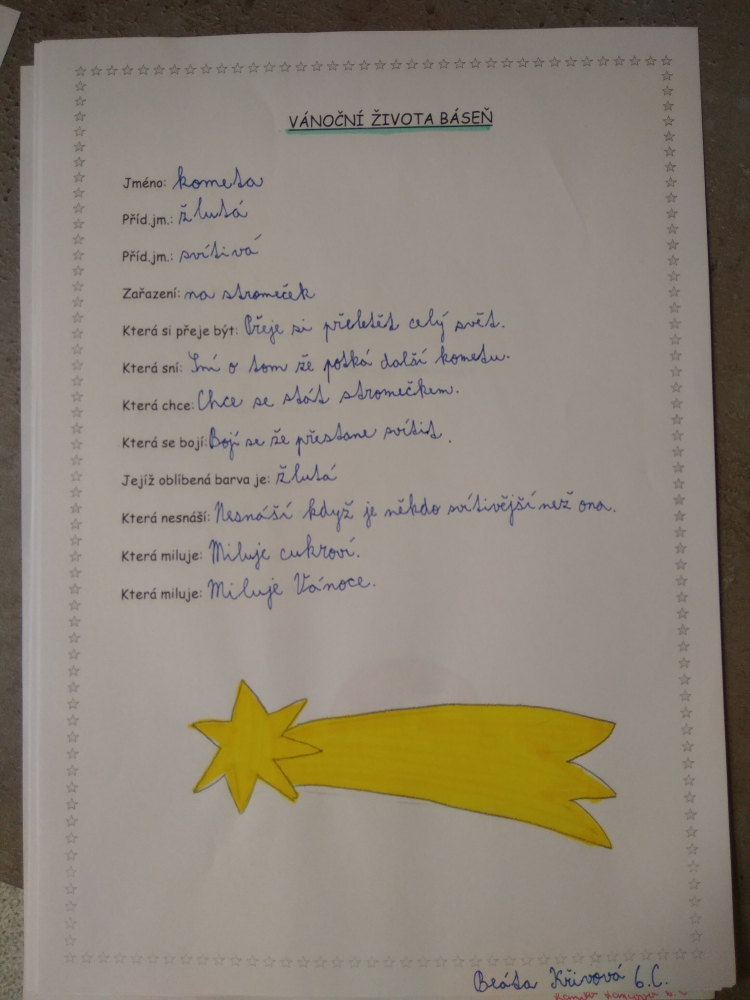 VÁNOČNÍ ŽIVOTA BÁSEŇ
Jméno: kometa
Příd.jm.: žlutá
Příd.jm.: svítivá
Zařazení: na stromeček
Která si přeje být: Přeje si přeletět celý svět.
Která sní: Sní o tom že potká další kometu.
Která chce: Chce se stát stromečkem.
Která se bojí: Bojí se že přestane svítit.
Jejíž oblíbená barva je: žlutá
Která nesnáší: Nesnáší když je někdo svítivější než ona.
Která miluje: Miluje cukroví.
Která miluje: Miluje Vánoce.
Beáta Křivová 6.C.